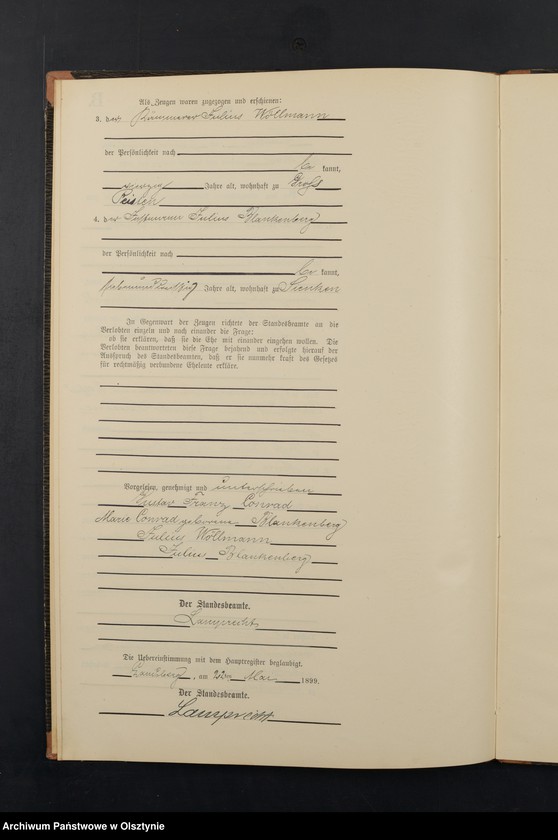 Als Zeugen waren zugezogen und erschienen:
3. der Kämmerer Julius Wollmann
der Persönlichkeit nach
be kannt,
vierzig Jahre alt, wohnhaft zu Gross
Peisten
4. der Julius Blankenberg
der Persönlichkeit nach
be kannt,
Jahre alt, wohnhaft zu
In Gegenwart der Zeugen richtete der Standesbeamte an die
Verlobten einzeln und nach einander die Frage:
ob sie erklären, daß sie die Ehe mit einander eingehen wollen. Die
Verlobten beantworteten diese Frage bejahend und erfolgte hierauf der
Ausspruch des Standesbeamten, daß er sie nunmehr kraft des Gesetzes
für rechtmäßig verbundene Eheleute erkläre.
Vorgelesen, genehmigt und unterschrieben
Gustav Franz Conrad
Marie Conrad geborene Blankenberg
Julius Wollmann
Julius Blankenberg
Der Standesbeamte.
Lamprecht
Die Uebereinstimmung mit dem Hauptregister beglaubigt.
Landsberg, am 22ten Mai 1899.
Der Standesbeamte.
Lamprecht
Archiwum Państwowe w Olsztynie